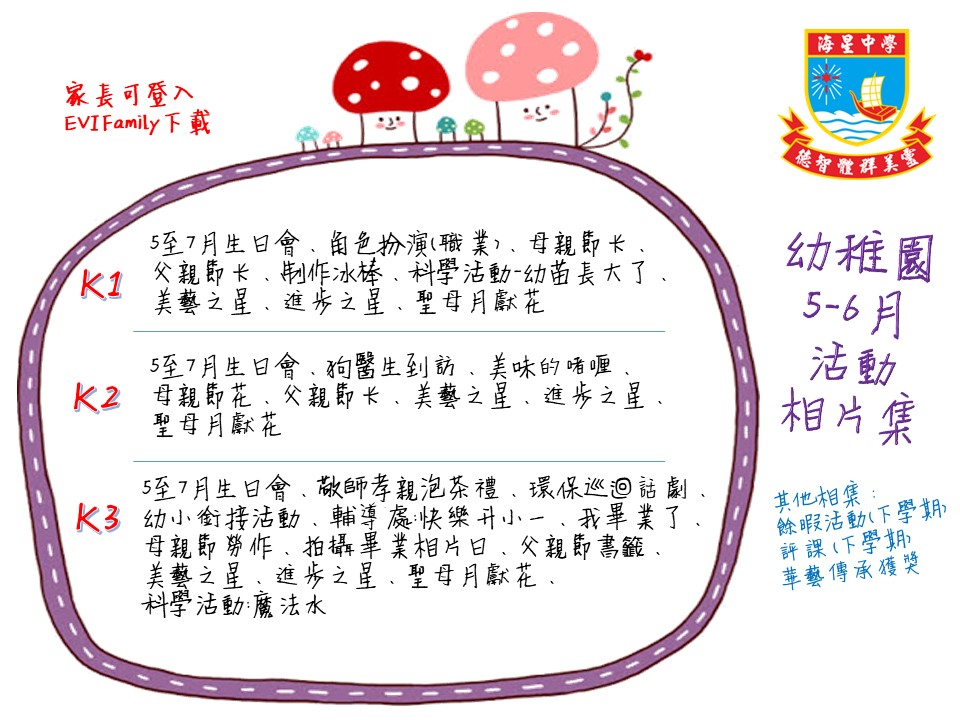 家長可登入
EVIFamily下載
海星中學
德智體群美靈
幼稚園
5-6月
活動
相片集
K1
5至7月生日會、角色扮演(職業)、母親節卡、
父親節卡、制作冰棒、科學活動-幼苗長大了、
美藝之星、進步之星、聖母月獻花
K2
5至7月生日會、狗醫生到訪、美味的啫喱、
母親節花、父親節卡、美藝之星、進步之星、
聖母月獻花
K3
5至7月生日會、敬師孝親泡茶禮、環保巡迴話劇、
幼小銜接活動、輔導處:快樂升小一、我畢業了、
母親節勞作、拍攝畢業相片日、父親節書籤、
美藝之星、進步之星、聖母月獻花、
科學活動:魔法水
其他相集:
餘暇活動(下學期)
評課(下學期)
華藝傳承獲獎